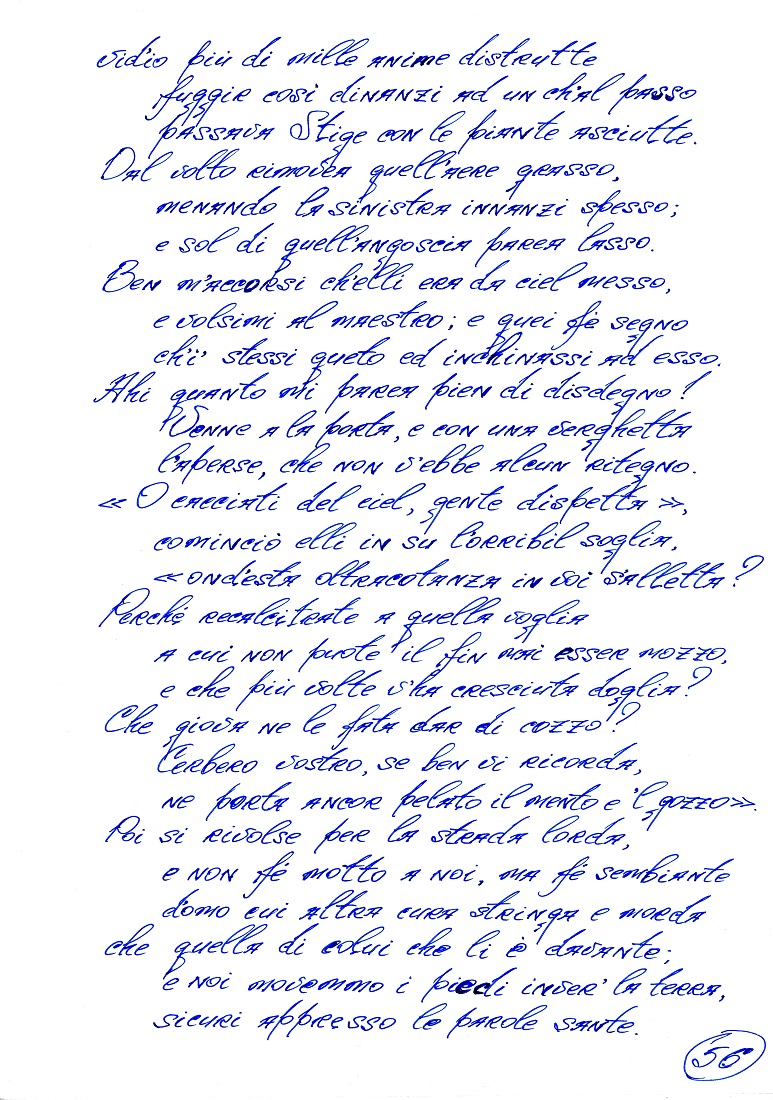 vid'io più di mille anime distrutte
fuggir così dinanzi ad un ch'al passo
passava Stige con le piante asciutte.
Dal volto rimovea quell'aere grasso,
menando la sinistra innanzi spesso;
e sol di quell'angoscia parea lasso.
Ben m'accorsi ch'elli era da ciel messo,
e volsimi al maestro; e quei fé segno
ch'i' stessi queto ed inchinassi ad esso.
Ahi quanto mi parea pien di disdegno!
Venne a la porta, e con una verghetta
l'aperse, che non v'ebbe alcun ritegno.
«O cacciati del ciel, gente dispetta»,
cominciò elli in su l'orribil soglia,
«ond'esta oltracotanza in voi s'alletta?
Perché recalcitrate a quella voglia
a cui non puote il fin mai esser mozzo,
e che più volte v'ha cresciuta doglia?
Che giova ne le fata dar di cozzo?
Cerbero vostro, se ben vi ricorda,
ne porta ancor pelato il mento e 'l gozzo».
Poi si rivolse per la strada lorda,
e non fé motto a noi, ma fé sembiante
d'omo cui altra cura stringa e morda
che quella di colui che li è davante;
e noi movemmo i piedi inver' la terra,
sicuri appresso le parole sante.
56